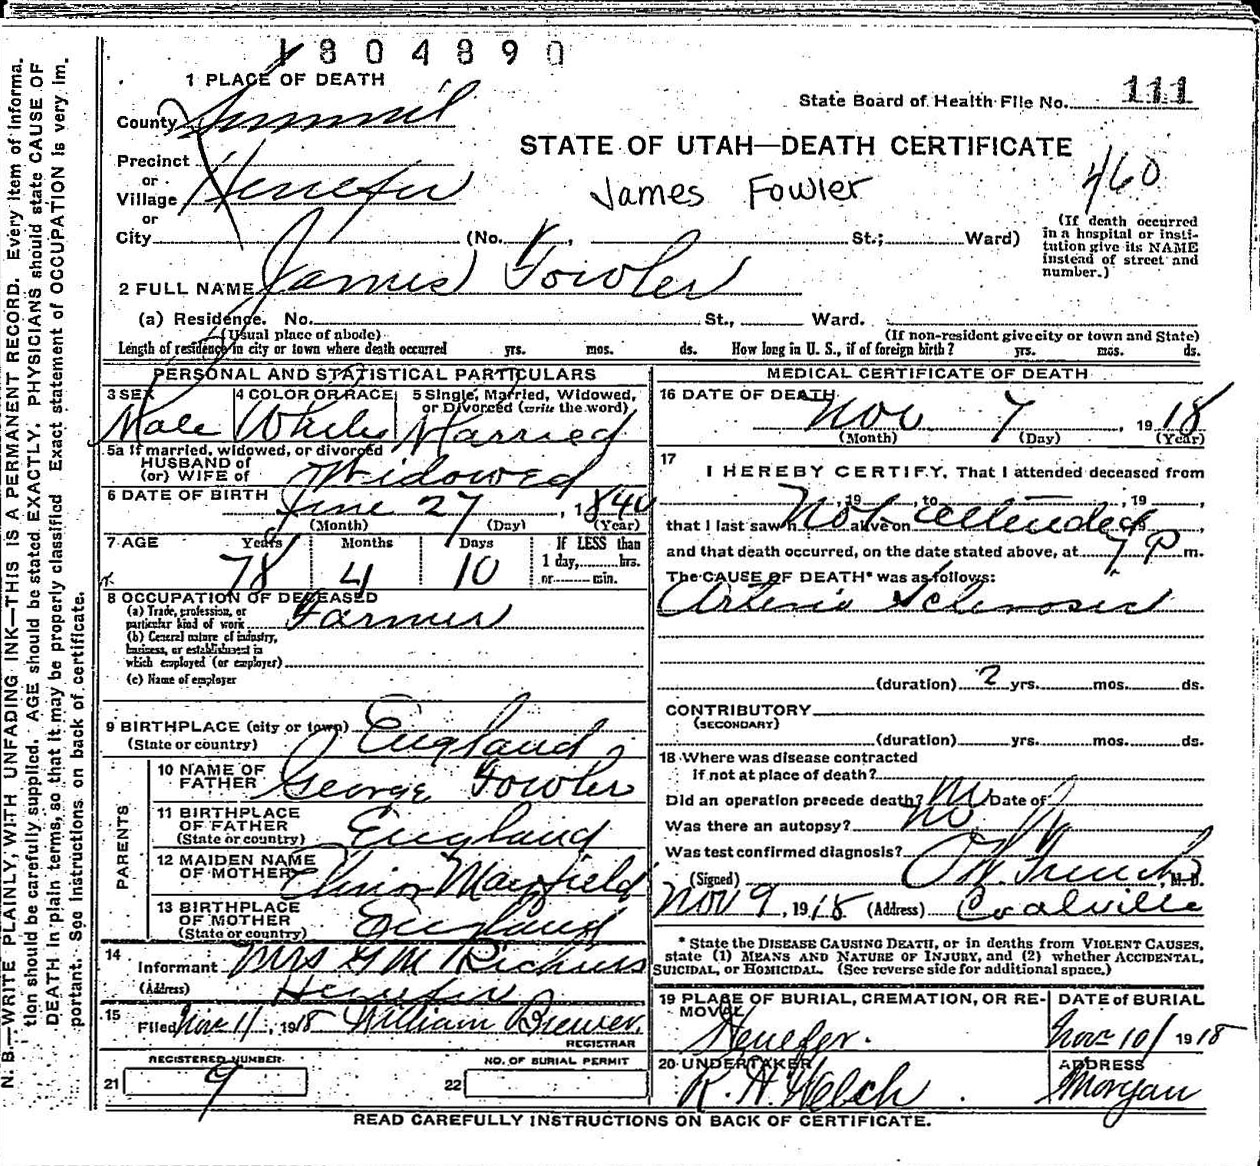 1804890
1 PLACE OF DEATH
State Board of Health File No. 111
County Summit
STATE OF UTAH—DEATH CERTIFICATE
Precinct
or
Village Henefer
James Fowler
460
or
City (No. , St.; Ward)
(If death occurred
in a hospital or insti-
tution give its NAME
instead of street and
number.)
2 FULL NAME James Fowler
(a) Residence. No. St., Ward.
(Usual place of abode) (If non-resident give city or town and State)
Length of residence in city or town where death occurred yrs. mos. ds. How long in U. S., if of foreign birth? yrs. mos. ds.
PERSONAL AND STATISTICAL PARTICULARS
3 SEX 4 COLOR OR RACE 5 Single, Married, Widowed,
or Divorced (write the word)
Male White Married
5a If married, widowed, or divorced
HUSBAND of
(or) WIFE of Widowed
6 DATE OF BIRTH June 27, 1840
(Month) (Day) (Year)
7 AGE Years Months Days If LESS than
1 day, hrs.
78 4 10 or min.
8 OCCUPATION OF DECEASED
(a) Trade, profession, or
particular kind of work Farmer
(b) General nature of industry,
business, or establishment in
which employed (or employer)
(c) Name of employer
9 BIRTHPLACE (city or town)
(State or country) England
PARENTS
10 NAME OF
FATHER George Fowler
11 BIRTHPLACE
OF FATHER
(State or country) England
12 MAIDEN NAME
OF MOTHER Mayfield
13 BIRTHPLACE
OF MOTHER
(State or country) England
14
Informant Mrs G M Richins
(Address) Henefer
15
Filed Nov 11, 1918 William Brewer
REGISTRAR
REGISTERED NUMBER NO. OF BURIAL PERMIT
21 9 22
MEDICAL CERTIFICATE OF DEATH
16 DATE OF DEATH Nov 7, 1918
(Month) (Day) (Year)
17
I HEREBY CERTIFY, That I attended deceased from
, 19 to , 19 ,
that I last saw h alive on Not attended
and that death occurred, on the date stated above, at 7 P m.
The CAUSE OF DEATH* was as follows:
Arterio Sclerosis
(duration) 2 yrs. mos. ds.
CONTRIBUTORY
(SECONDARY)
(duration) yrs. mos. ds.
18 Where was disease contracted
If not at place of death?
Did an operation precede death? No Date of
Was there an autopsy? No
Was test confirmed diagnosis?
(Signed) , M. D.
Nov 9, 1918 (Address) Coalville
* State the DISEASE CAUSING DEATH, or in deaths from VIOLENT CAUSES,
state (1) MEANS AND NATURE OF INJURY, and (2) whether ACCIDENTAL,
SUICIDAL, or HOMICIDAL. (See reverse side for additional space.)
19 PLACE OF BURIAL, CREMATION, OR RE-
MOVAL DATE of BURIAL
Henefer. Nov 10/ 1918
20 UNDERTAKER ADDRESS
R. H. Welch Morgan
READ CAREFULLY INSTRUCTIONS ON BACK OF CERTIFICATE.
N. B.—WRITE PLAINLY, WITH UNFADING INK—THIS IS A PERMANENT RECORD. Every item of informa-
tion should be carefully supplied. AGE should be stated EXACTLY. PHYSICIANS should state CAUSE OF
DEATH in plain terms, so that it may be properly classified. Exact statement of OCCUPATION is very im-
portant. See instructions on back of certificate.